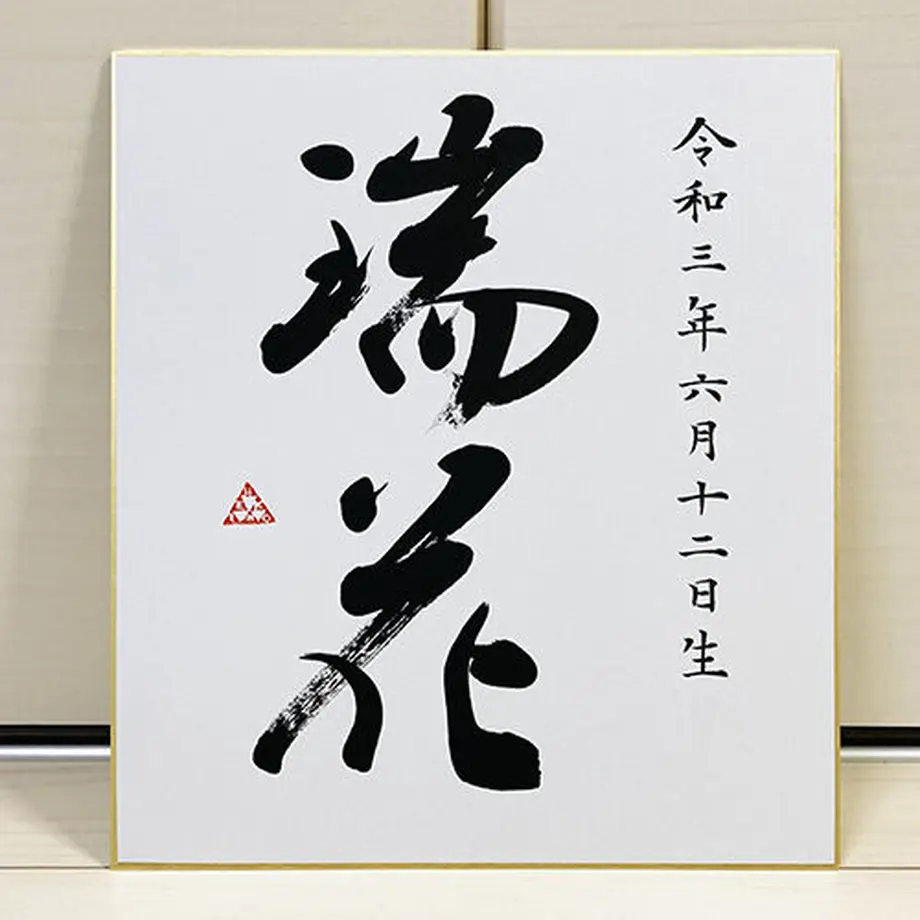 令和三年六月十二日生
瑞花